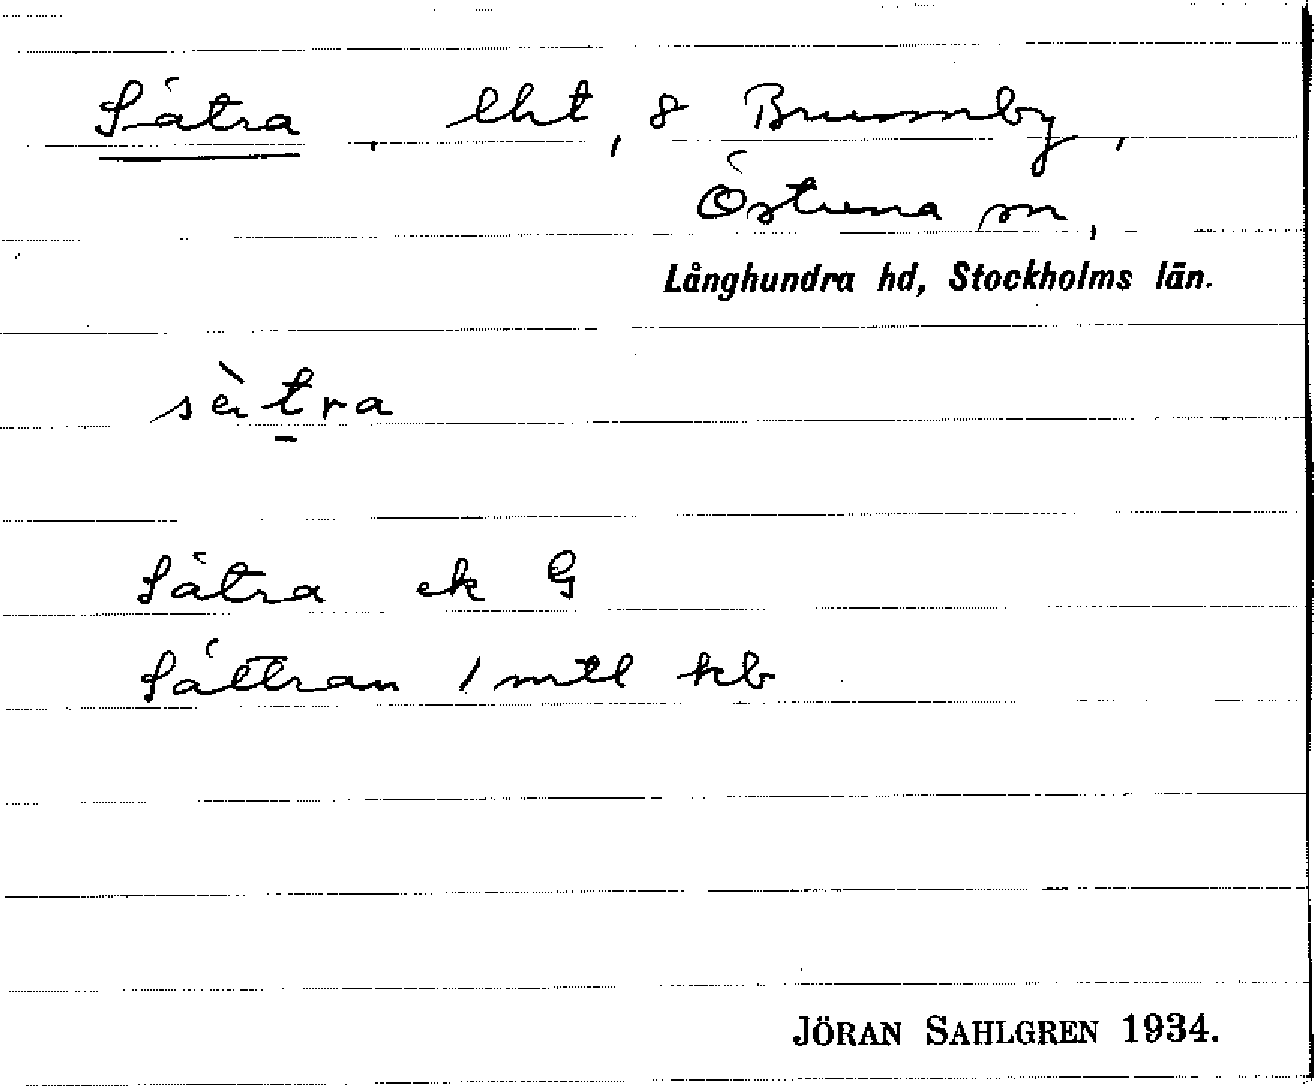 Sätra, lht, 8 Brunnby,
Östuna sn,
Långhundra hd, Stockholms län.
sä̀t̲ra
Sätra ek G
Sättran 1 mtl kb
JÖRAN SAHLGREN 1934.